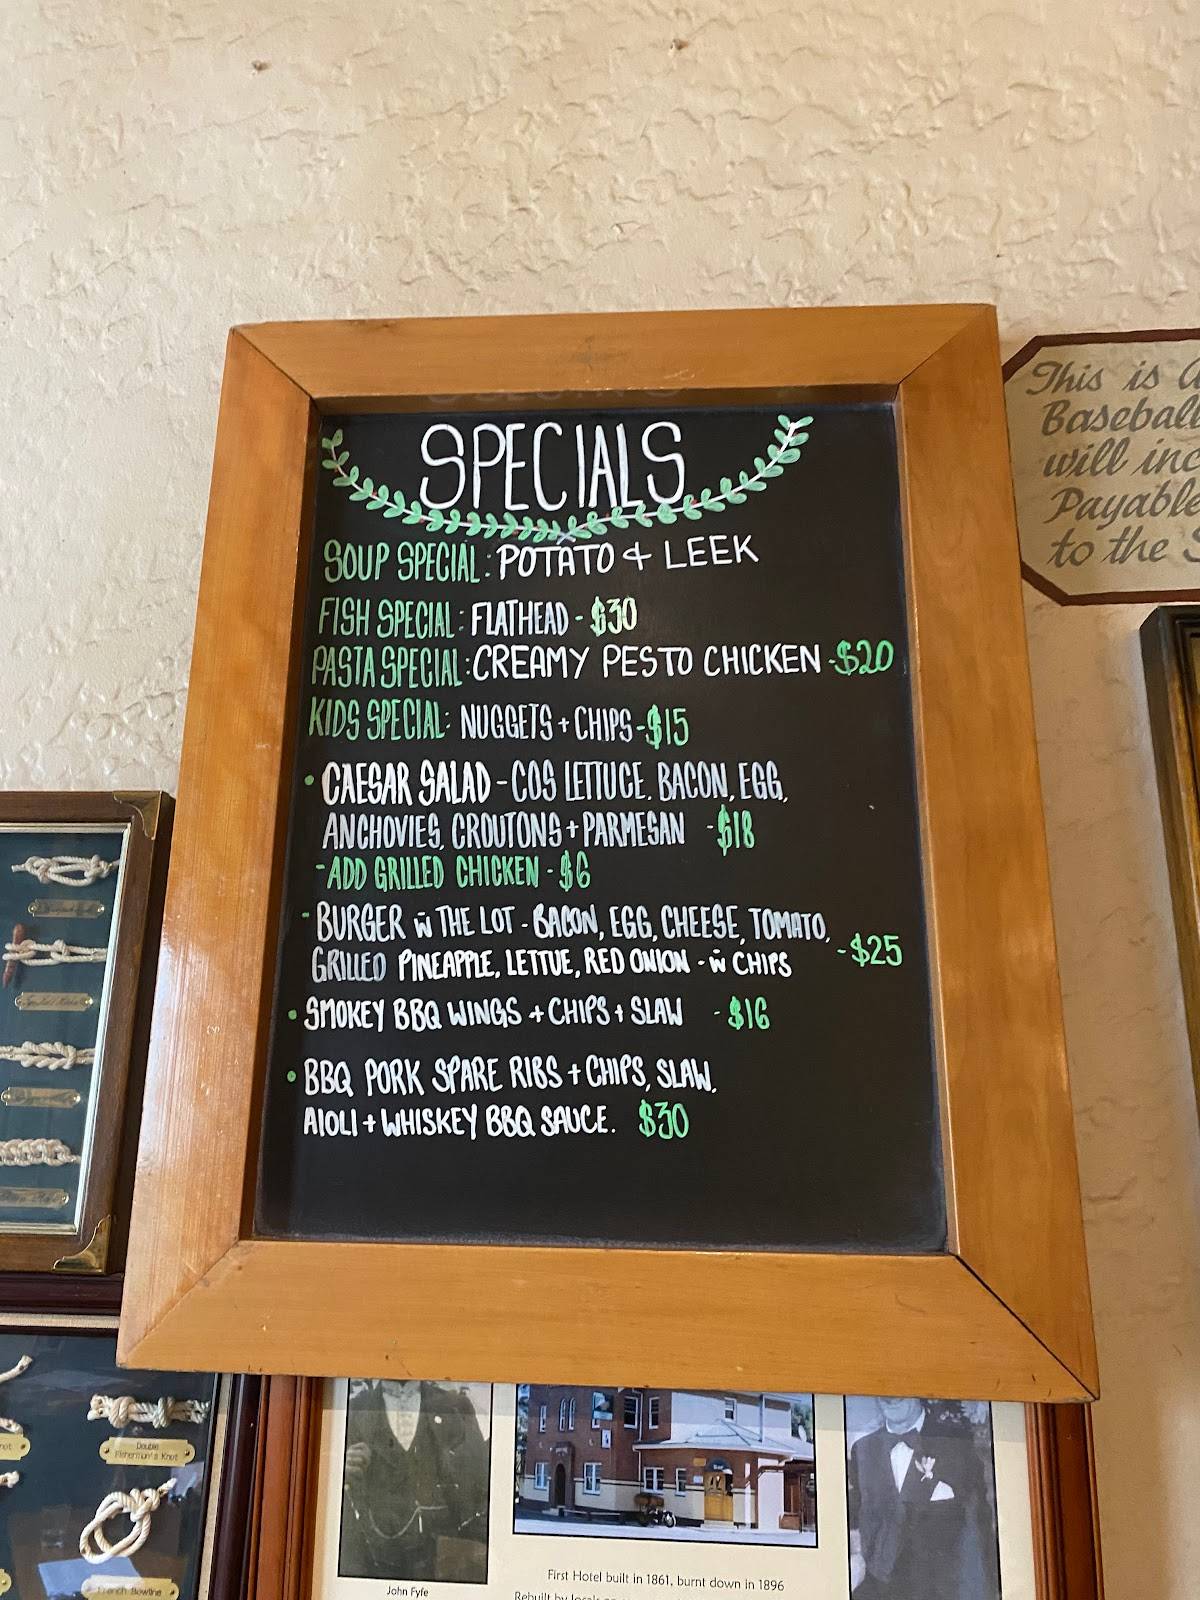 SPECIALS
SOUP SPECIAL: POTATO + LEEK
FISH SPECIAL: FLATHEAD - $30
PASTA SPECIAL: CREAMY PESTO CHICKEN - $20
KIDS SPECIAL: NUGGETS + CHIPS - $15
• CAESAR SALAD - COS LETTUCE. BACON, EGG,
ANCHOVIES, CROUTONS + PARMESAN - $18
- ADD GRILLED CHICKEN - $6
- BURGER w THE LOT - BACON, EGG, CHEESE, TOMATO,
GRILLED PINEAPPLE, LETTUE, RED ONION - w CHIPS - $25
• SMOKEY BBQ WINGS + CHIPS + SLAW - $16
• BBQ PORK SPARE RIBS + CHIPS, SLAW,
AIOLI + WHISKEY BBQ SAUCE. $30
This is
Baseball
will inc
Payable
to the S
Double
Fisherman's Knot
French Bowline
John Fyfe
First Hotel built in 1861, burnt down in 1896
Rebuilt by locals